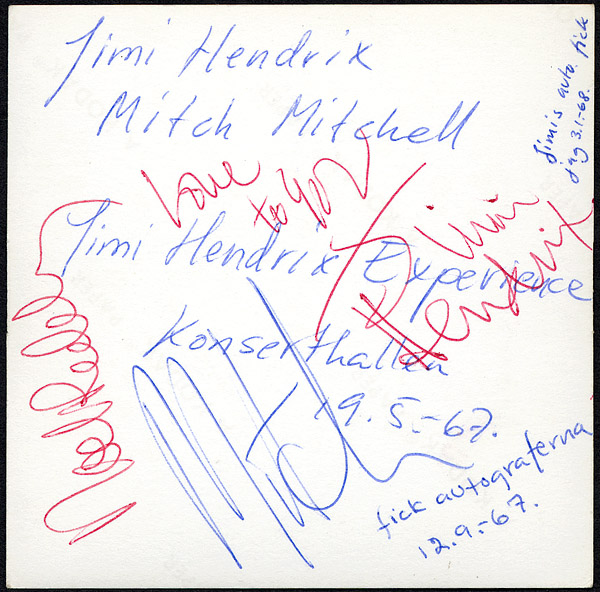 Jimi Hendrix
Mitch Mitchell
Jimis auto. fick
jag 3.1.-68.
Love
to you
Jimi
Hendrix
Jimi Hendrix Experience
Noel Redding
Konserthallen
19.5.-67.
Mitch
fick autograferna
12.9.-67.